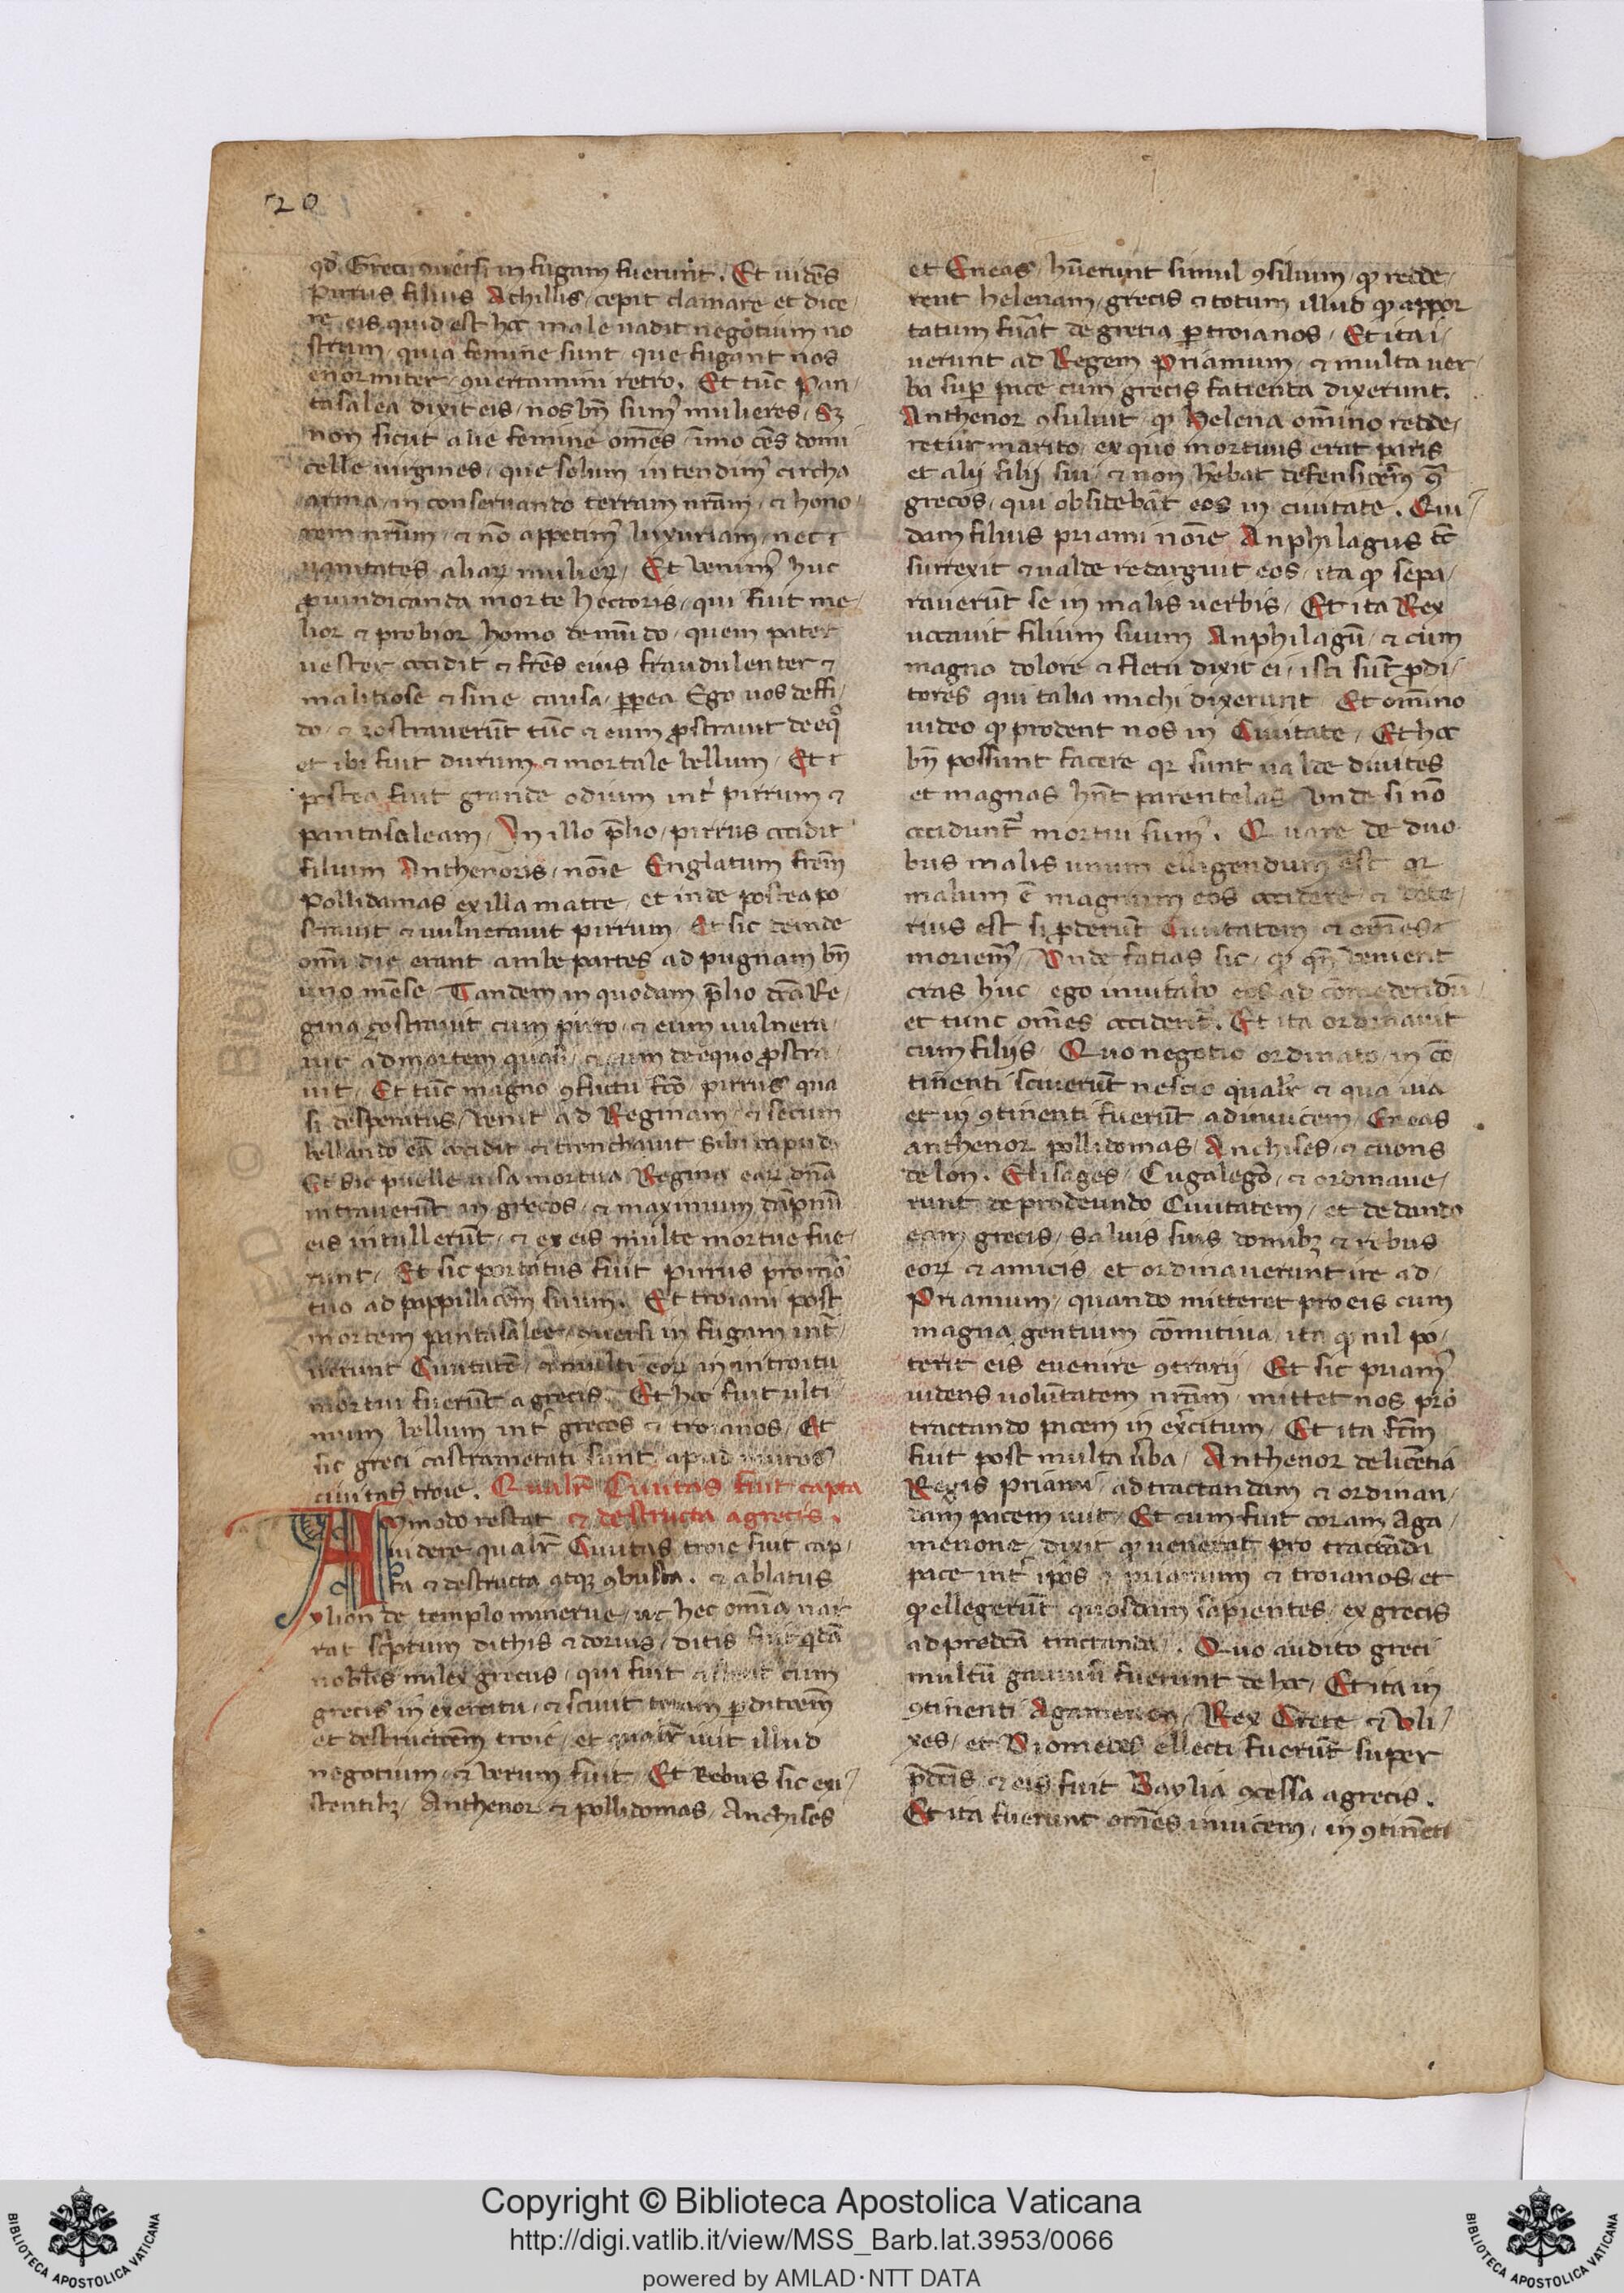 20
qd Greci ɔuersi in fugam fuerunt. Et uidēs
Pirrus filius Achillis, cepit clamare et dice
re eis quid est hoc male uadit negotium no
strum, quia femine sunt que fugant nos
enormiter, ɔuertamini retro. Et tūc pan
tasalea dixit eis, nos bn̄ sum᷒ mulieres, Sꝫ
non sicut alie femine om̄es, īmo om̄s domi
celle uirgines, que solum intendim᷒ circha
arma, in conseruando terram nr̄am, ⁊ hono
rem nr̄um, ⁊ nō appetim᷒ luxuriam, nec
uanitates aliaꝝ mulieꝝ, Et venim᷒ huc
ꝓ uindicanda morte hectoris, qui fuit me
lior ⁊ probior homo de mūdo, quem pater
uester occidit ⁊ fr̄es eius fraudulenter ⁊
malitiose ⁊ sine causa, ꝓpea Ego uos deffi
do, ⁊ ɔostrauerūt tūc ⁊ eum ꝓstrauit de eqͦ
et ibi fuit durum ⁊ mortale bellum, Et
postea fuit grande odium int̄ pirrum ⁊
pantasaleam, In illo p̄lio, pirrus occidit
filium Anthenoris, nōie Englatum frēm
Pollidamas ex illa matre, et inde postea po
strauit ⁊ uulnerauit pirrum, Et sic deinde
om̄i die erant ambe partes ad pugnam bn̄
uno mēse, Tandem in quodam p̄lio dc̄a Re
gina ɔostrauit cum pirro, ⁊ eum uulnera
uit ad mortem quasi, ⁊ eum de equo ꝓstra
uit, Et tūc magno ɔflictu fc̄o pirrus qua
si desperatus, venit ad Reginam, ⁊ secum
bellando eā occidit ⁊ trunchauit sibi caput.
Et sic puelle uisa mortua Regina eaꝝ dn̄a
intrauerūt in grecos, ⁊ maximum dāpnū
eis intullerūt, ⁊ ex eis multe mortue fue
runt, Et sic portatus fuit pirrus pro mo
tuo ad pappillicem suum. Et troiani post
mortem pantasalee, ɔuersi in fugam int̄
uerunt Ciuitatē, ⁊ multi eoꝝ in introitu
mortui fuerūt a grecis. Et hoc fuit ulti
mum bellum int̄ grecos ⁊ troianos, Et
sic greci castrametati sunt apud muros
ciuitatis troie. Qualr̄ Ciuitas fuit capta
⁊ destructa a grecis.
Amodo restat
uidere qualr̄ Ciuitas troie fuit cap
ta ⁊ destructa atqꝫ ɔbusta. ⁊ ablatus
ylion de templo minerue, ut hec om̄ia nar
rat scptum dithis ⁊ dorius, ditis fuit qdā
nobilis milex grecus, qui fuit cum
grecis in exercitu, ⁊ sciuit totam ꝑditcēm
et destructcēm troie, et qualr̄ iuit illud
negotium, ⁊ verum fuit, Et Rebus sic exi
stentibꝫ, Anthenor ⁊ pollidomas, Anchises
et Eneas, hūerunt simul ɔsilium, ꝙ redde
rent helenam, grecis ⁊ totum illud ꝙ appor
tatum fuāt de grecia ꝑ troianos, Et ita i
uerunt ad Regem priamum, ⁊ multa ver
ba suꝑ pace cum grecis fatienta dixerunt.
Anthenor ɔsuluit, ꝙ helena om̄ino redde
retur marito, ex quo mortuus erat paris
et alii filij sui, ⁊ non hēbat defensicēm ɔͣ
grecos, qui obsidebāt eos in ciuitate. Qui
dam filius priami nōie Anphilagus tc̄
surrexit ⁊ ualde redarguit eos, ita ꝙ sepa
rauerūt se in malis uerbis, Et ita Rex
uocauit filium suum Anphilagū, ⁊ cum
magno dolore ⁊ fletu dixit ei, isti sūt ꝓdi
tores qui talia michi dixerunt Et om̄ino
uideo ꝙ prodent nos in Ciuitate, Et hoc
bn̄ possunt facere qꝛ sunt ualde diuites
et magnas hn̄t parentelas Vnde si nō
occidunt᷑ mortui sum᷒. Quare de duo
bus malis unum elligendum est qꝛ
malum ē magnum eos occidere, ⁊ dete
rius est si ꝓderūt Ciuitatem ⁊ om̄es
moriem᷒, Vnde fatias sic, ꝙ qn̄ venient
cras huc, ego inuitabo eos ad cōmedendū
et tunc om̄es occident᷑. Et ita ordinauit
cum filijs, Quo negotio ordinato, in cō
tinenti sciuerūt nescio qualr̄ ⁊ qua uia
et in ɔtinenti fuerūt adinuicem, Eneas
anthenor pollidomas, Anchises, ⁊ cuons
de lon. Elisages, Cugalegō, ⁊ ordinaue
runt de prodeundo Ciuitatem, et de dando
eam grecis, saluis suis domibꝫ ⁊ rebus
eoꝝ ⁊ amicis, et ordinauerunt ire ad
Priamum, quando mitteret pro eis cum
magna gentium cōmitiua, ita ꝙ nil po
terit eis euenire ɔtrarij, Et sic priam᷒
uidens uolūtatem nr̄am, mittet nos pro
tractando pacem in exercitum, Et ita fc̄m
fuit post multa ūba, Anthenor de licētia
Regis priami, ad tractandam ⁊ ordinan
dam pacem iuit, Et cum fuit coram Aga
menone, dixit ꝙ uenerat pro tractāda
pace int̄ ip̄os ⁊ priamum ⁊ troianos, et
ꝙ ellegerūt quosdam sapientes, ex grecis
ad predc̄a tractanda. Quo audito greci
multū gauisi fuerunt de hoc, Et ita in
ɔtinenti Agamenon, Rex Crete ⁊ Vli
xes, et Diomedes ellecti fuerūt super
p̄dc̄is, ⁊ eis fuit Baylia ɔcessa a grecis.
Et ita fuerunt om̄es inuicem, in ɔtinēti
Copyright © Biblioteca Apostolica Vaticana
http://digi.vatlib.it/view/MSS_Barb.lat.3953/0066
powered by AMLAD·NTT DATA
BIBLIOTECA APOSTOLICA VATICANA
BIBLIOTECA APOSTOLICA VATICANA